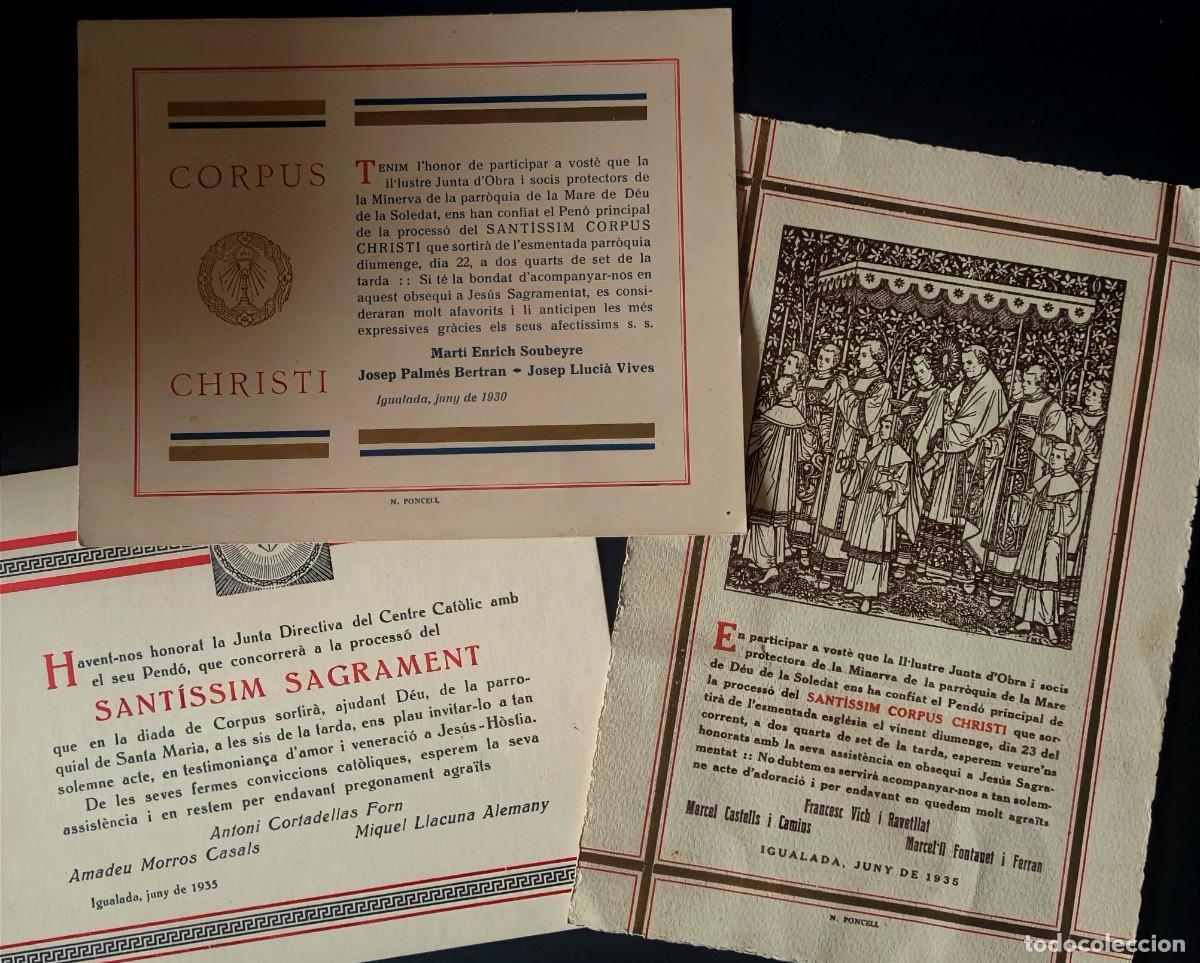 CORPUS
CHRISTI
TENIM l'honor de participar a vostè que la
il·lustre Junta d'Obra i socis protectors de
la Minerva de la parròquia de la Mare de Déu
de la Soledat, ens han confiat el Penó principal
de la processó del SANTÍSSIM CORPUS
CHRISTI que sortirà de l'esmentada parròquia
diumenge, dia 22, a dos quarts de set de la
tarda :: Si té la bondat d'acompanyar-nos en
aquest obsequi a Jesús Sagramentat, es consi-
deraran molt afavorits i li anticipen les més
expressives gràcies els seus afectíssims s. s.
Martí Enrich Soubeyre
Josep Palmés Bertran - Josep Llucià Vives
Igualada, juny de 1930
N. PONCELL
Havent-nos honorat la Junta Directiva del Centre Catòlic amb
el seu Pendó, que concorrerà a la processó del
SANTÍSSIM SAGRAMENT
que en la diada de Corpus sortirà, ajudant Déu, de la parro-
quial de Santa Maria, a les sis de la tarda, ens plau invitar-lo a tan
solemne acte, en testimoniança d'amor i veneració a Jesús-Hòstia.
De les seves fermes conviccions catòliques, esperem la seva
assistència i en restem per endavant pregonament agraïts
Antoni Cortadellas Forn
Amadeu Morros Casals Miquel Llacuna Alemany
Igualada, juny de 1935
En participar a vostè que la Il·lustre Junta d'Obra i socis
protectors de la Minerva de la parròquia de la Mare
de Déu de la Soledat ens ha confiat el Pendó principal de
la processó del SANTÍSSIM CORPUS CHRISTI que sor-
tirà de l'esmentada església el vinent diumenge, dia 23 del
corrent, a dos quarts de set de la tarda, esperem veure'ns
honorats amb la seva assistència en obsequi a Jesús Sagra-
mentat :: No dubtem es servirà acompanyar-nos a tan solem-
ne acte d'adoració i per endavant en quedem molt agraïts
Francesc Vich i Ravetllat
Marcel Castells i Camins Marcel·lí Fontanet i Ferran
IGUALADA, JUNY DE 1935
N. PONCELL
todocoleccion